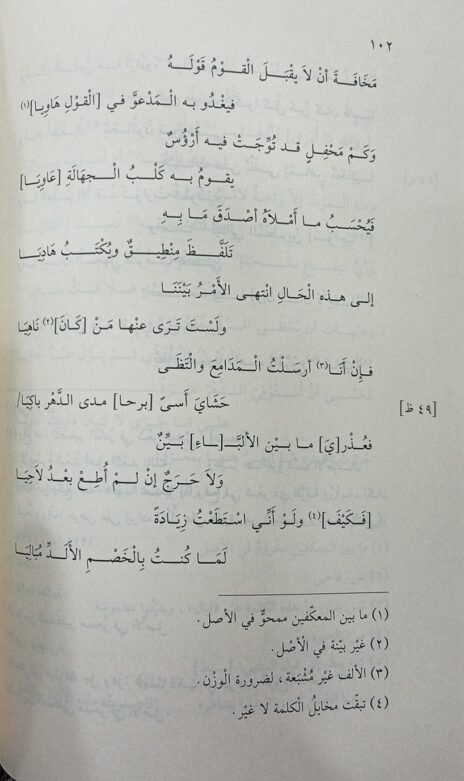 ١٠٢
مَخَافَةَ أنْ لاَ يَقْبَلَ الْقَوْمُ قَوْلَهُ
فيَغْدُو به الْمَدْعوَّ في [القَوْلِ هَاوِيا](١)
وَكَمْ مَحْفِلٍ قد تُوِّجَتْ فيه أرْؤُسٌ
يقومُ به كَلْبُ الْجهَالَةِ [عَاوِيَا]
فَيُحْسَبُ ما أمْلاَهُ أصْدَقَ مَا بِهِ
تَلَفَّظَ مِنْطِيقٌ ويُكْتَبُ هَادِيَا
إلى هذه الْحَالِ انْتهى الأمْرُ بَيْنَنَا
ولَسْتَ تَرَى عنْها مَنْ [كَانَ](٢) نَاهِيَا
فإنْ أنَا(٣) أرسَلْتُ الْمَدَامِعَ والْتَظَى
[٤٩ ظ]
حَشَايَ أسىً [برحا] مدى الدَّهْر باكِيَا/
فعُذْر[يَ] ما بيْن الألبَّـ[ـاءِ] بَيِّنٌ
وَلاَ حَرجٌ إنْ لـمْ أُطِعْ بعْدُ لاَحِيَا
[فَكَيْفَ](٤) ولَوْ أنِّي اسْتَطَعْتُ زِيَادَةً
لَمَا كُنتُ بِالْخَصْمِ الألَدِّ مُبَالِيَا
(١) ما بين المعكّفين ممحوٌّ في الأصل.
(٢) غيْر بيّنة في الأصْل.
(٣) الألف غيْر مُشْبَعة، لضرورة الْوزْن.
(٤) تبقّت مخايلُ الكلمة لا غيْر.